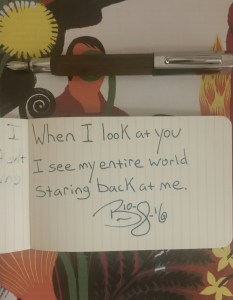 I. When I look at you
I see my entire world
staring back at me.